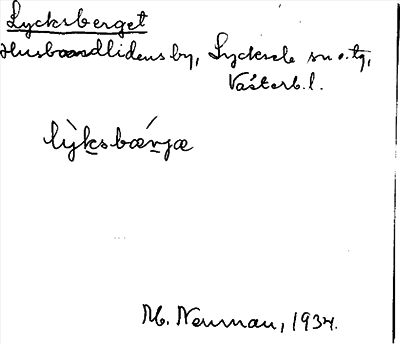 Lycksberget
Husbondlidens by, Lycksele sn o. tg,
Västerb. l.
lỳksbǽrjæ
M. Neuman, 1934.